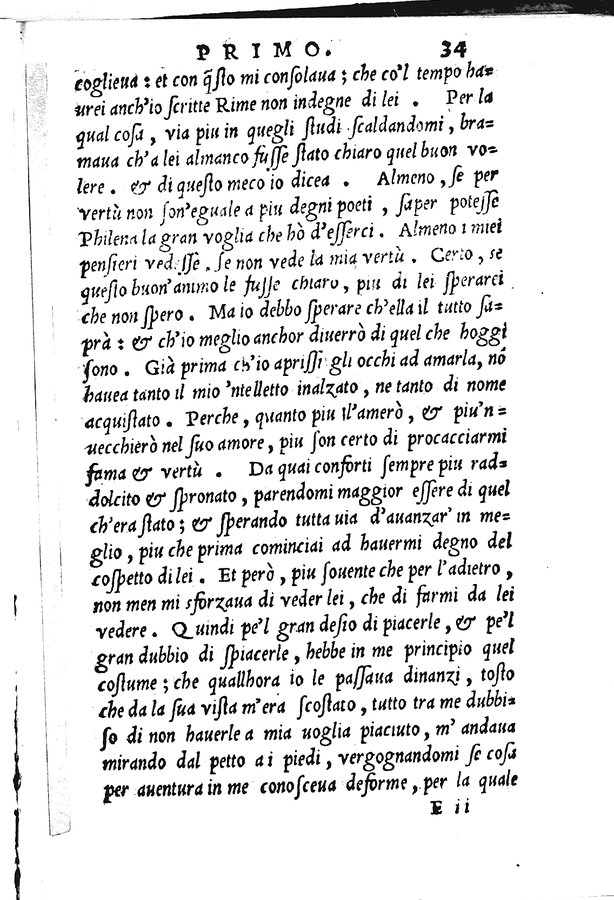 PRIMO. 34
coglieua : et con q̃sto mi consolaua ; che co'l tempo ha=
urei anch'io scritte Rime non indegne di lei . Per la
qual cosa , via piu in quegli studi scaldandomi , bra=
maua ch'a lei almanco fusse stato chiaro quel buon vo=
lere . & di questo meco io dicea . Almeno , se per
vertù non son'eguale a piu degni poeti , saper potesse
Philena la gran voglia che hò d'esserci . Almeno i miei
pensieri vedesse . se non vede la mia vertù . Certo , se
questo buon'animo le fusse chiaro , piu di lei sperarei
che non spero . Ma io debbo sperare ch'ella il tutto sa=
prà : & ch'io meglio anchor diuerrò di quel che hoggi
sono . Già prima ch'io aprissi gli occhi ad amarla, nõ
hauea tanto il mio 'ntelletto inalzato , ne tanto di nome
acquistato . Perche , quanto piu il'amerò , & piu'n=
uecchierò nel suo amore, piu son certo di procacciarmi
fama & vertù . Da quai conforti sempre piu rad=
dolcito & spronato , parendomi maggior essere di quel
ch'era stato ; & sperando tutta uia d'auanzar' in me=
glio , piu che prima cominciai ad hauermi degno del
cospetto di lei . Et però , piu souente che per l'adietro ,
non men mi sforzaua di veder lei , che di farmi da lei
vedere . Quindi pe'l gran desio di piacerle , & pe'l
gran dubbio di spiacerle , hebbe in me principio quel
costume ; che quallhora io le passaua dinanzi , tosto
che da la sua vista m'era scostato , tutto tra me dubbi=
so di non hauerle a mia uoglia piaciuto, m' andaua
mirando dal petto a i piedi , vergognandomi se cosa
per auentura in me conosceua deforme , per la quale
E ii